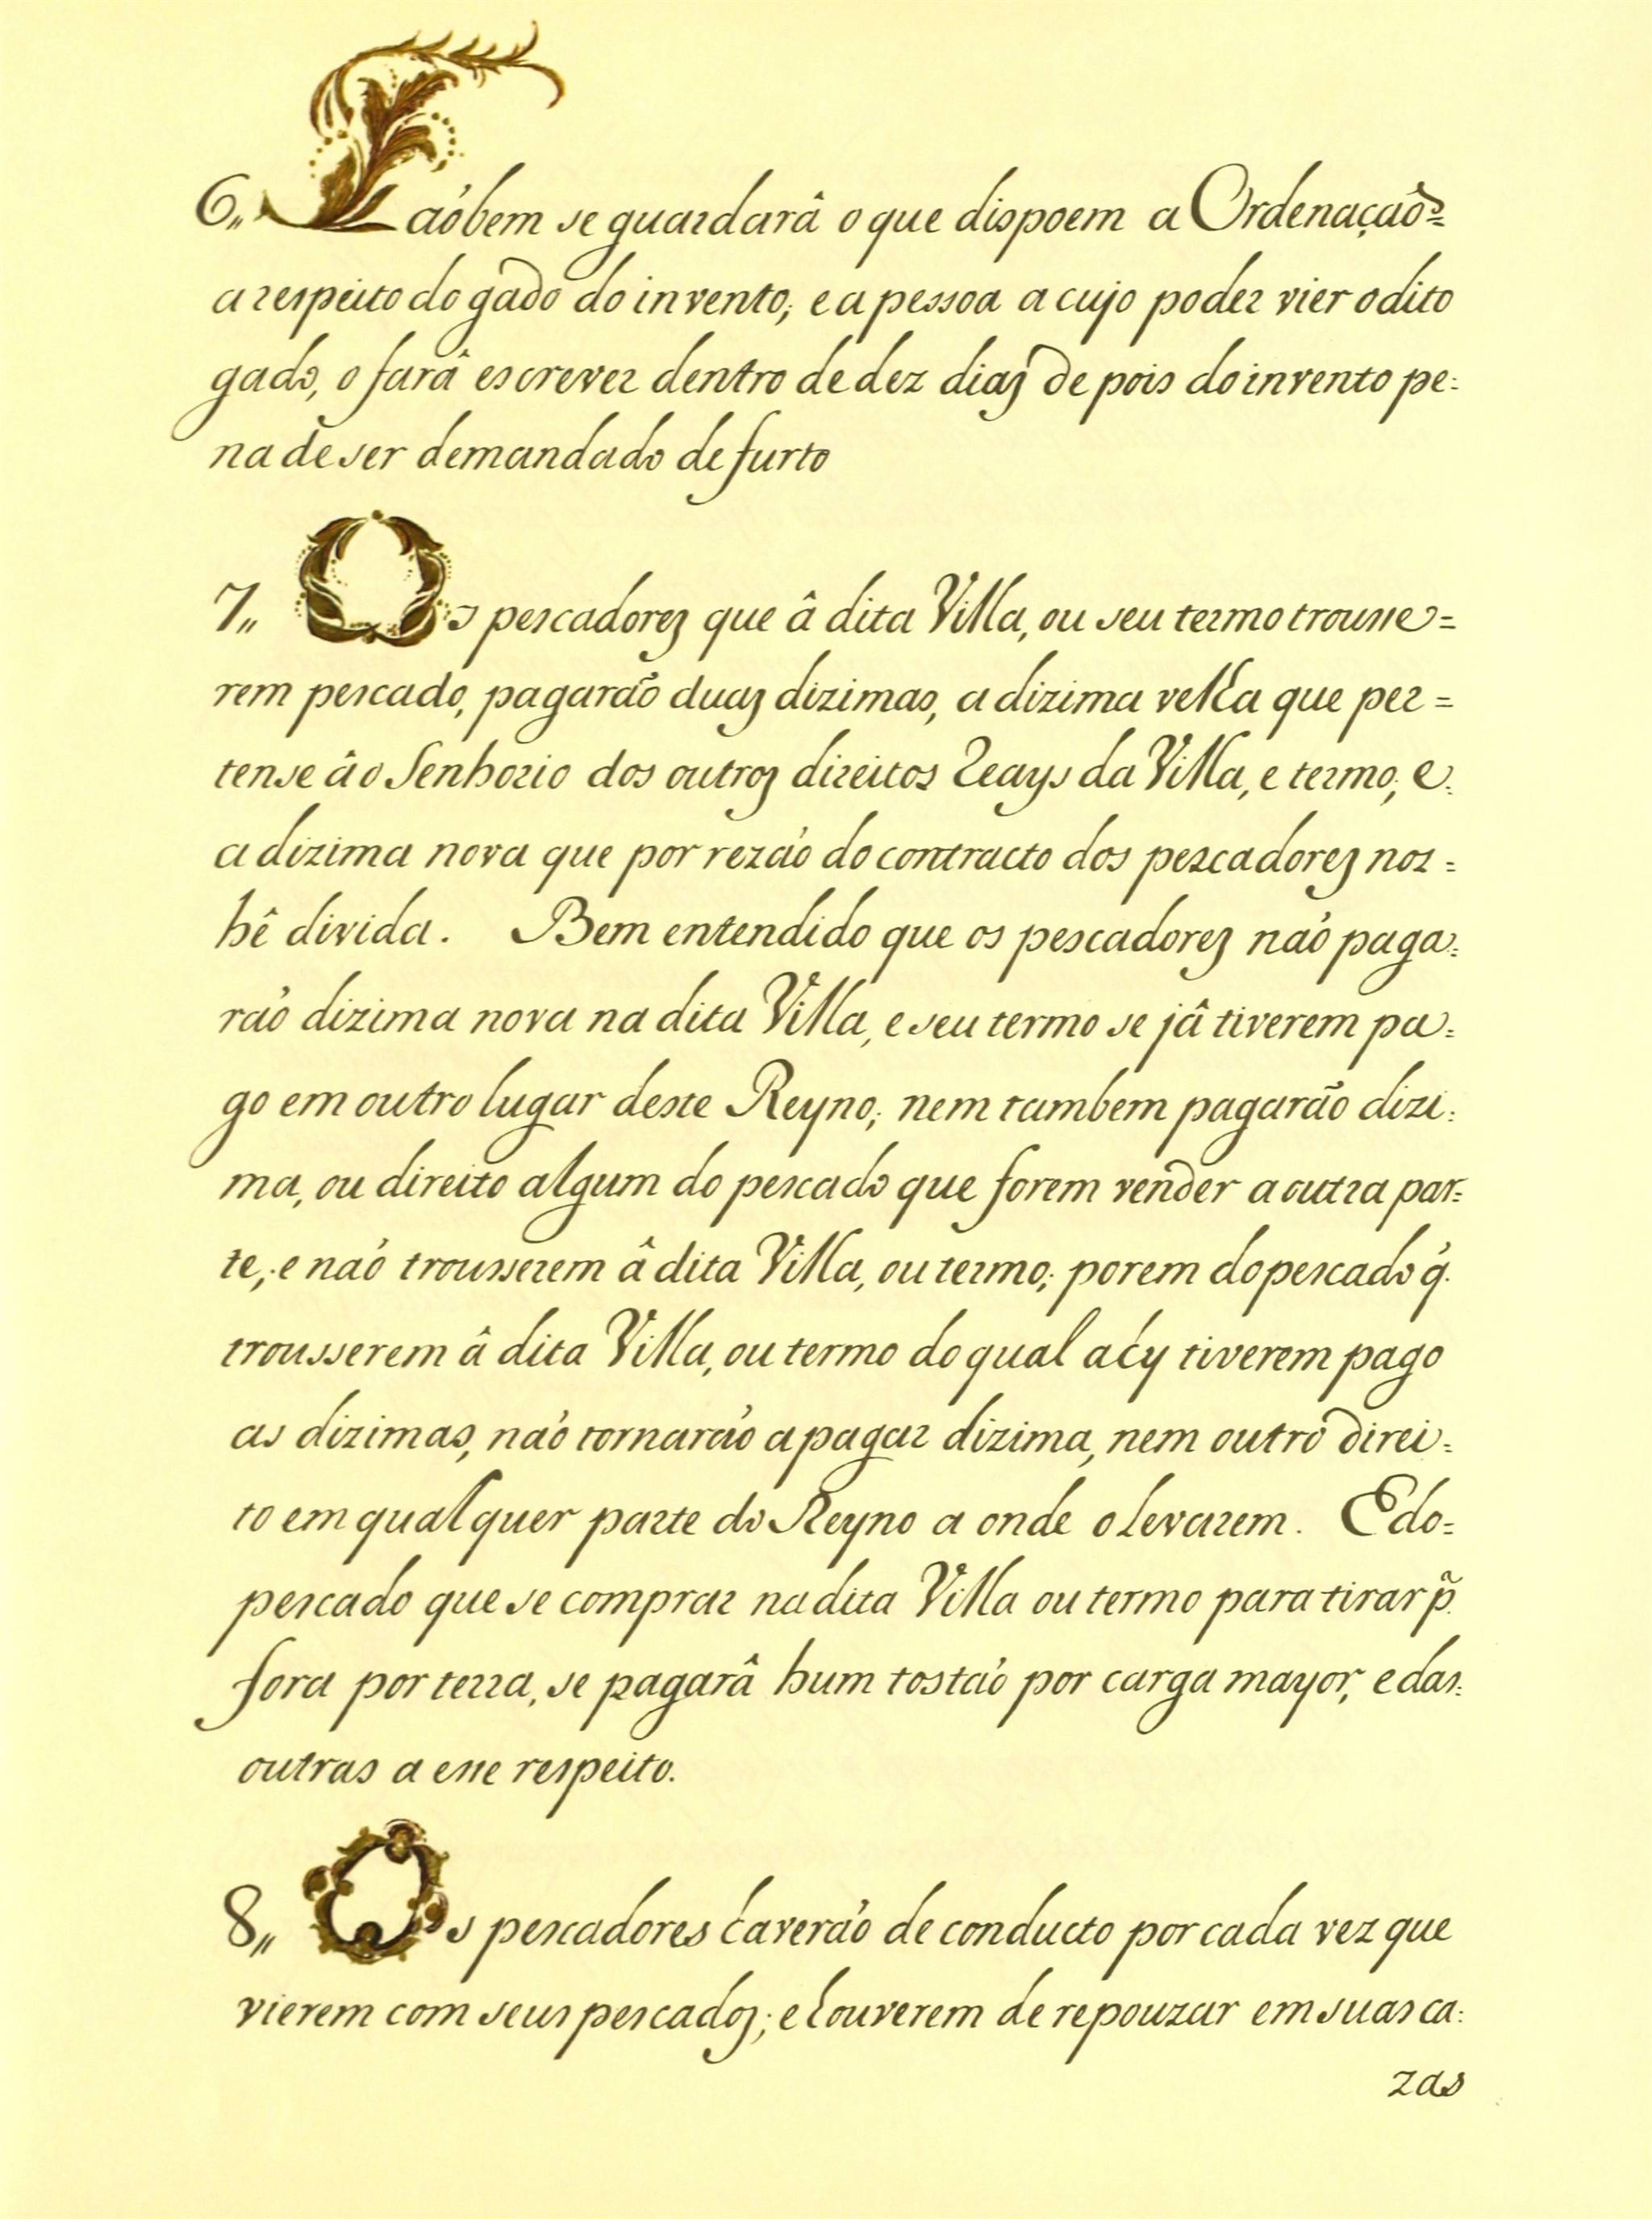 6,, Taóbem se guardarâ o que dispoem a Ordenaçaó=
a respeito do gado do invento; e a pessoa a cujo poder vier o dito
gado, o farâ escrever dentro de dez dias de pois do invento pe=
na de ser demandado de furto
7,, Os pescadores que â dita Villa, ou seu termo trousse=
rem pescado, pagarão duas dizimas, a dizima velha que per=
tense âo Senhorio dos outros direitos Reays da Villa, e termo; e
a dizima nova que por rezaó do contracto dos pescadores nos=
hê divida. Bem entendido que os pescadores naó paga=
raó dizima nova na dita Villa, e seu termo se jâ tiverem pa=
go em outro lugar deste Reyno; nem tambem pagarão dizi=
ma, ou direito algum do pescado que forem vender a outra par=
te; e naó trousserem â dita Villa, ou termo; porem do pescado q́.
trousserem â dita Villa, ou termo do qual ahy tiverem pago
as dizimas, naó tornaraó a pagar dizima, nem outro direi=
to em qualquer parte do Reyno a onde o levarem. E do=
pescado que se comprar na dita Villa ou termo para tirar p̃.
fora por terra, se pagarâ hum tostaó por carga mayor, e das=
outras a esse respeito.
8,, Os pescadores haveraó de conducto por cada vez que
vierem com seus pescados; e houverem de repouzar em suas ca=
zas